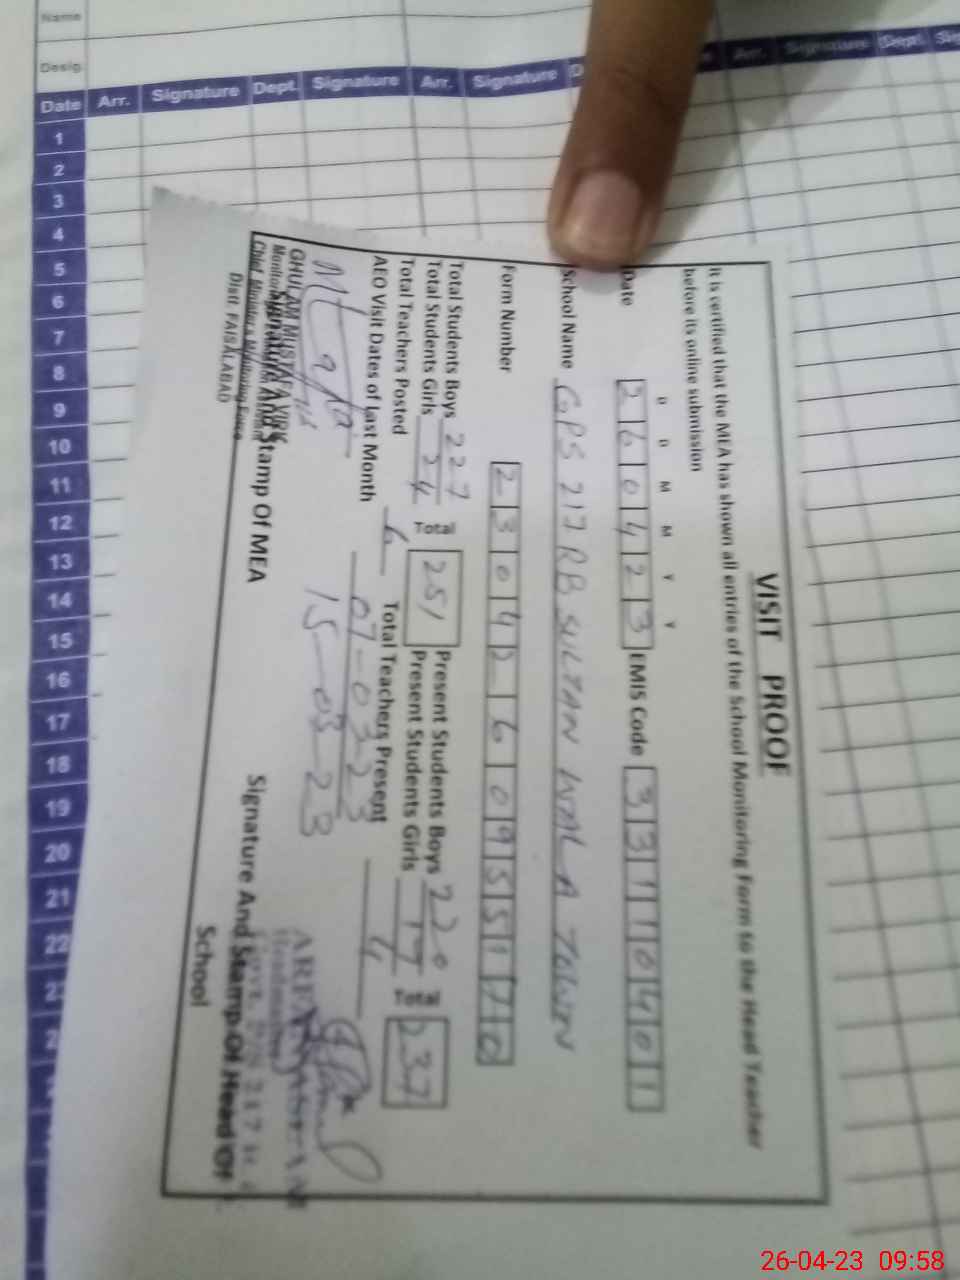 Name
Desig.
Date Arr. Signature Dept. Signature Arr. Signature Arr. Signature Dept.
1
2
3
4
5
6
7
8
9
10
11
12
13
14
15
16
17
18
19
20
21
22
VISIT PROOF
It is certified that the MEA has shown all entries of the School Monitoring Form to the Head Teacher
before its online submission
D D M M Y Y
Date 260423 EMIS Code 33110401
School Name GPS 217 RB SULTAN WALA TOWN
Form Number 23042609551
Total Students Boys 227 Present Students Boys 220
Total Students Girls 24 Total 251 Present Students Girls 17 Total 237
Total Teachers Posted 6 Total Teachers Present 4
AEO Visit Dates of Last Month 07-03-23
15-03-23
GHULAM MUSTAFA VIRK
Distt. FAISALABAD
Signature And Stamp Of MEA
Signature And Stamp Of Head Of
School
26-04-23 09:58